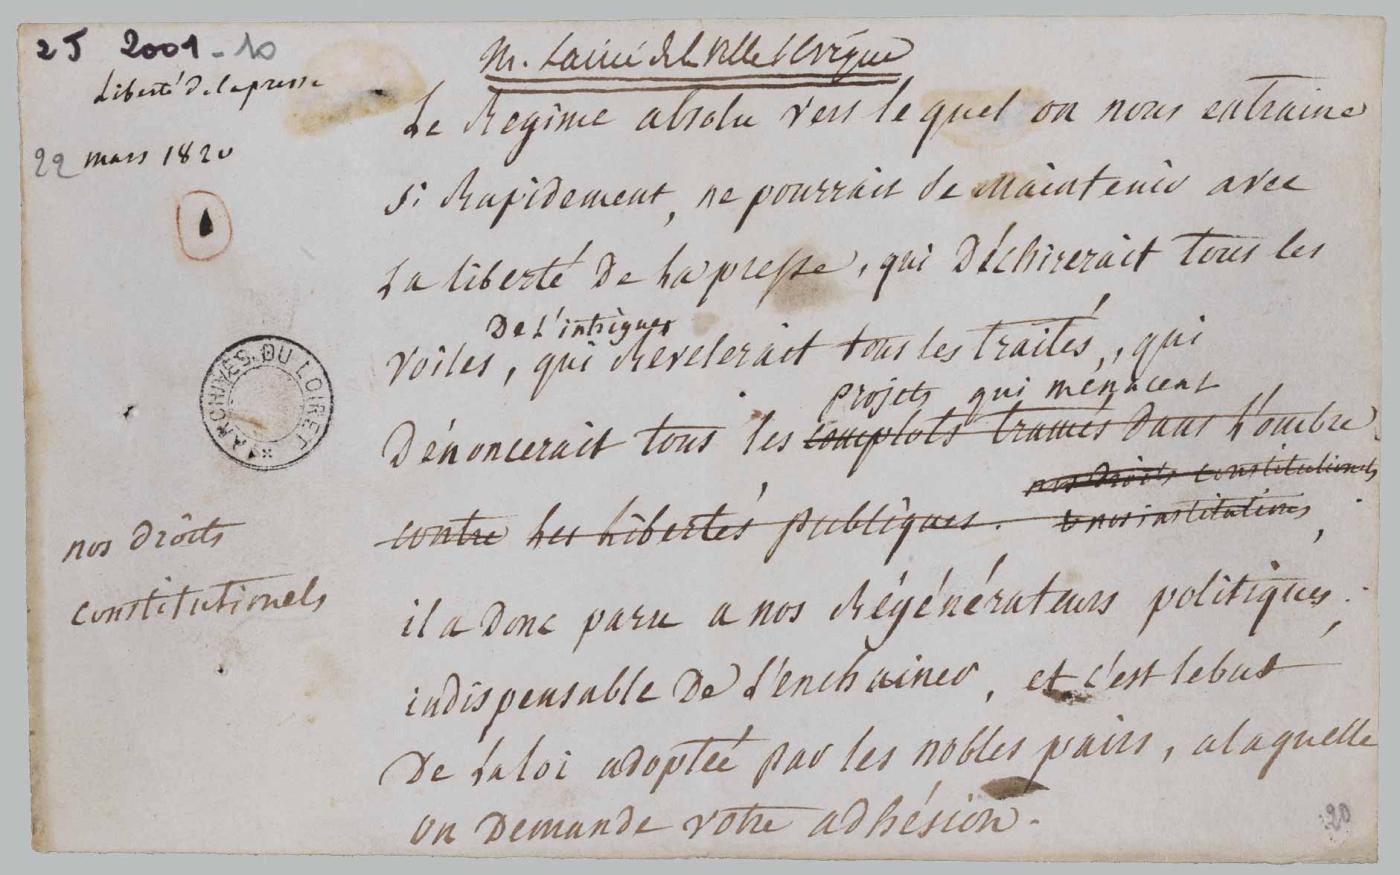 2 J 2001-10
Liberté de la presse
22 mars 1820
M. Lainé de la Ville l'Evêque
Le Régime absolu vers lequel on nous entraine
si Rapidement, ne pourrait se Maintenir avec
La liberté De La presse, qui Déchirerait tous les
De L'intrigue
Voiles, qui Révélerait tous les traités, qui
projets qui ménacent
Dénoncerait tous les complots tramés Dans L'ombre
nos Droits constitutionels
contre les Libertés publiques. & nos institutions,
nos drôits
constitutionels
il a Donc paru a nos Régénérateurs politiques,
indispensable De L'enchainer, et c'est le but
De La loi adoptée par les nobles pairs, a laquelle
on Demande votre adhésion.
ARCHIVES DU LOIRET
20